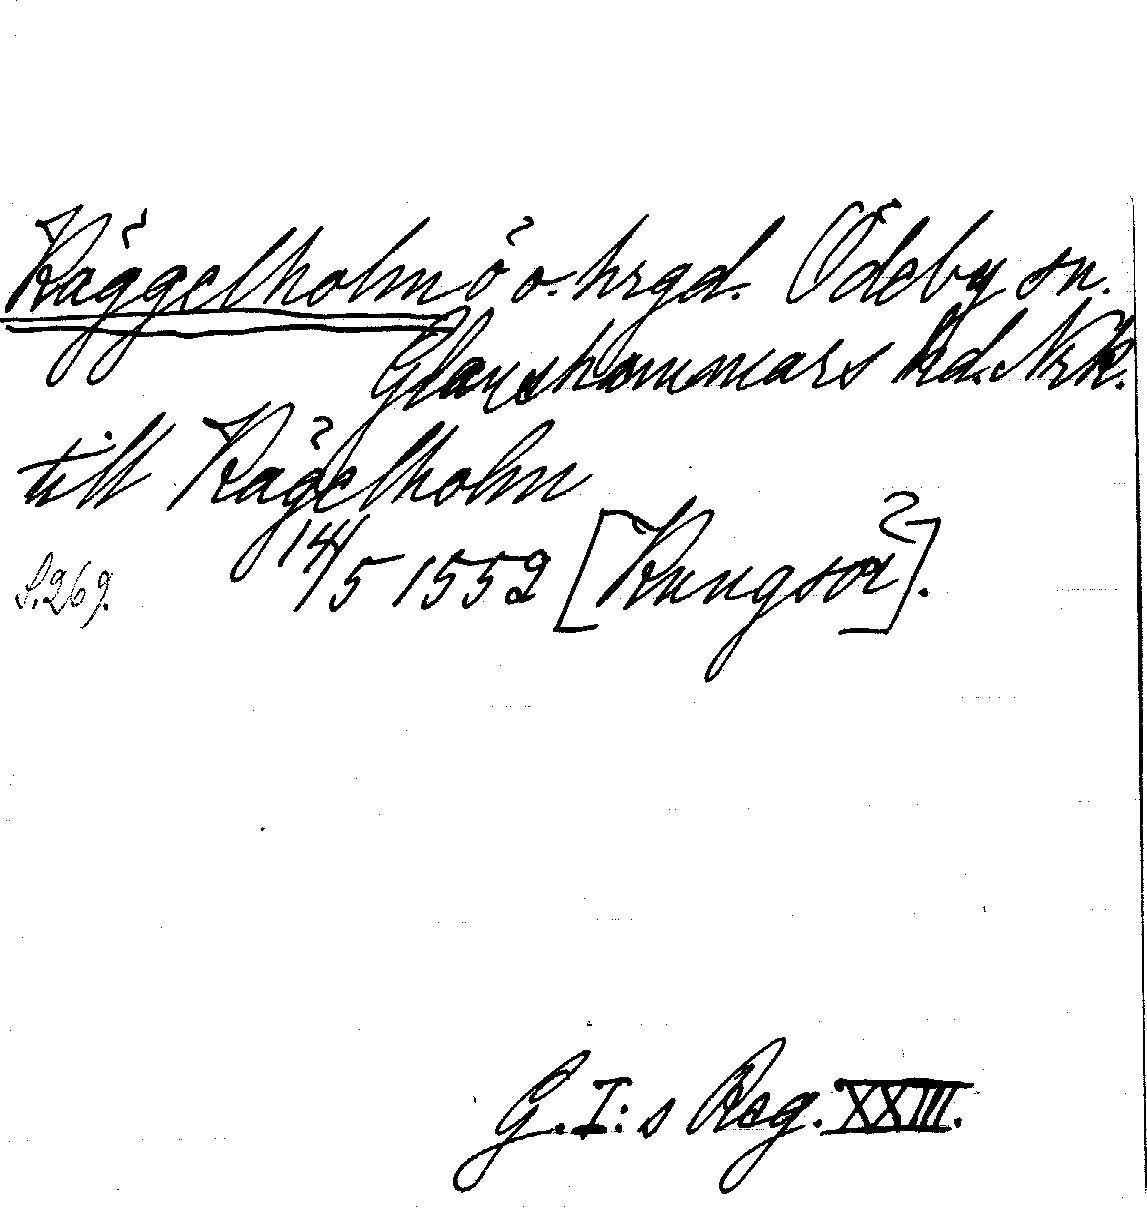 Käggelholm ö o. hrgd. Ödeby sn.
Glanshammars hd. Nrk.
till Kägelholm
14/5 1552 [Kungsör].
S. 269.
G. I:s Reg. XXIII.